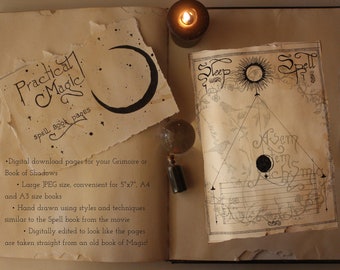 Practical
Magic
spell book pages
Sleep Spell
•Digital download pages for your Grimoire or
Book of Shadows
• Large JPEG size, convenient for 5"x7", A4
and A3 size books
• Hand drawn using styles and techniques
similar to the Spell book from the movie
• Digitally edited to look like the pages
are taken straight from an old book of Magic!